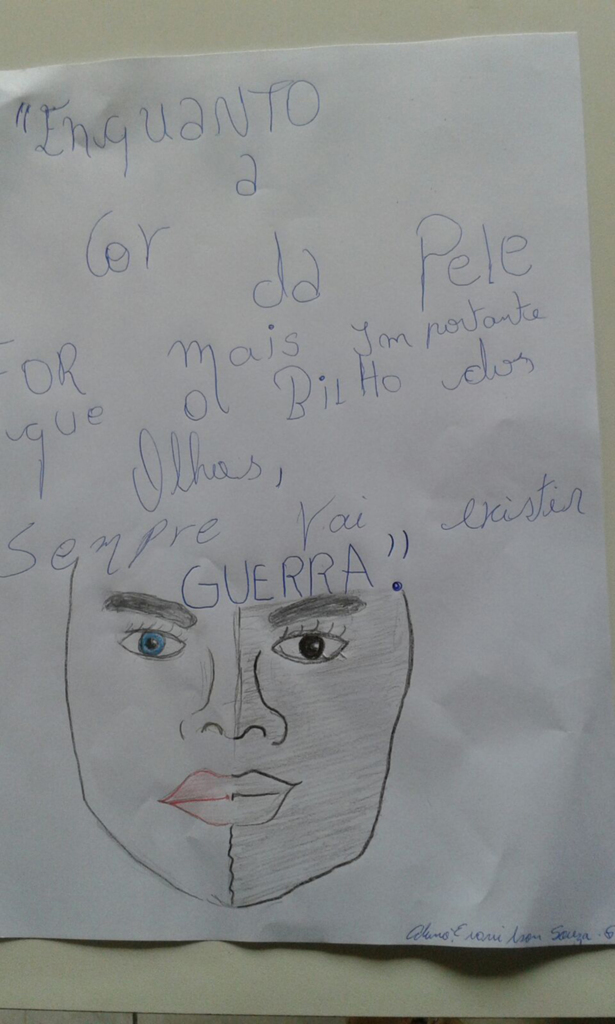 "ENQUANTO
a
Cor da Pele
FOR mais Importante
que o BILHO dos
Olhos,
Sempre Vai existir
GUERRA".
Aluno: Souza